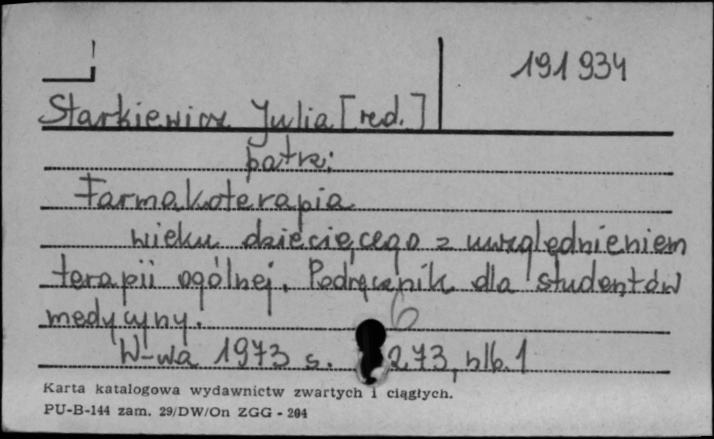 191934
Starkiewicz Julia [red.]
patrz:
Farmakoterapia
wieku dziecięcego z uwzględnieniem
terapii ogólnej. Podręcznik dla studentów
medycyny. 6
W-wa 1973 s. 273, nlb. 1
Karta katalogowa wydawnictw zwartych i ciągłych.
PU-B-144 zam. 29/DW/On ZGG - 204